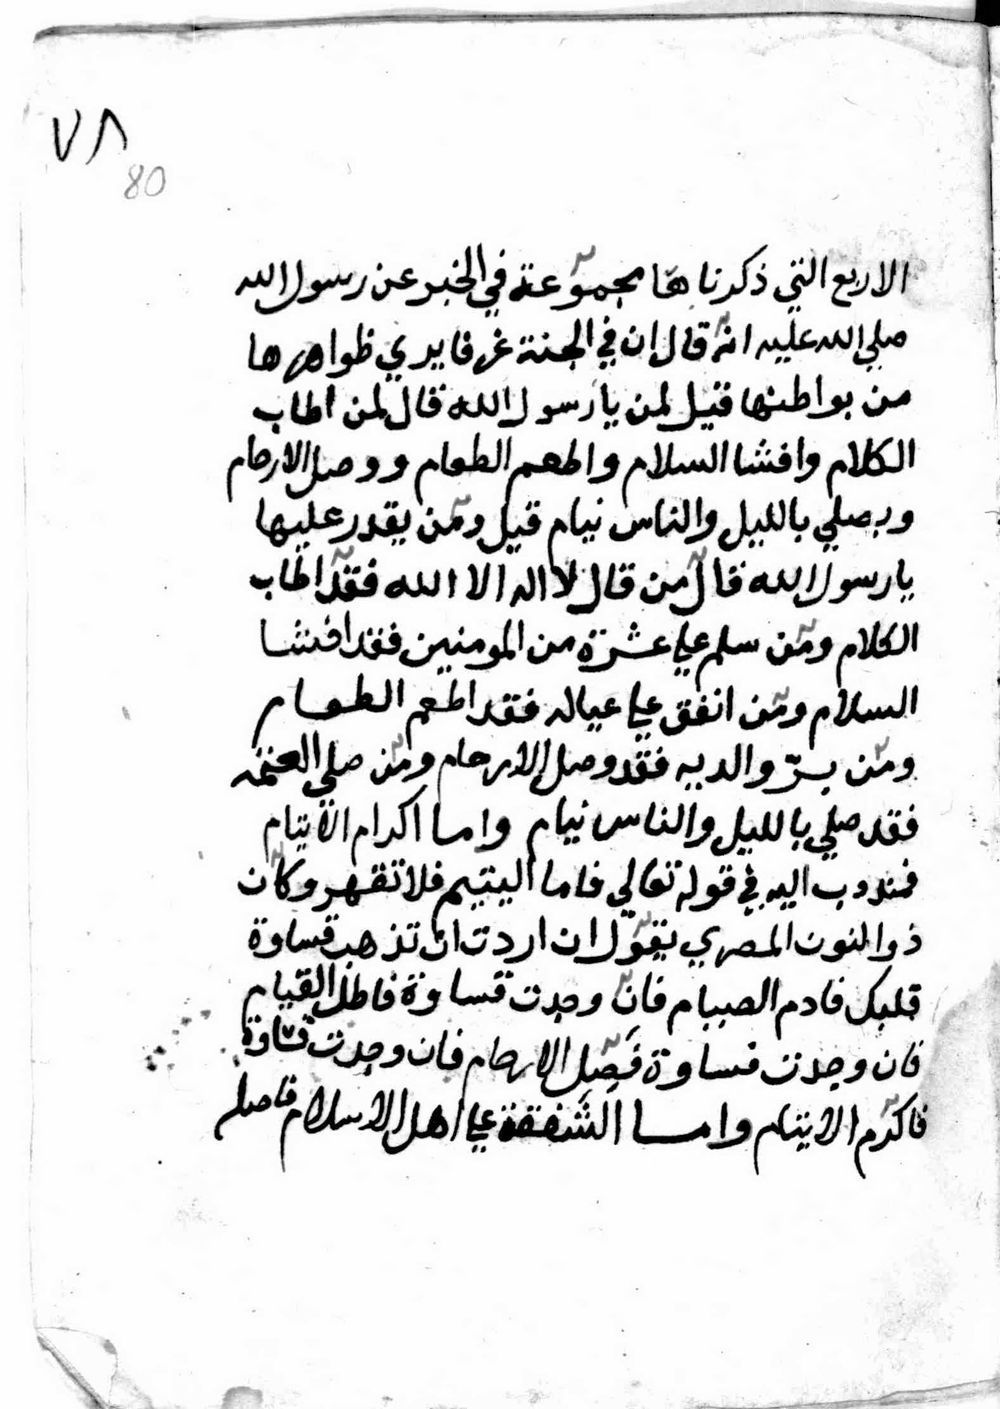 ٧٨
80
الاربع التي ذكرناها مجموعة في الخبر عن رسول الله
صلي الله عليه انه قال ان في الجنة غرفا يري ظواهرها
من بواطنها قيل لمن يا رسول الله قال لمن اطاب
الكلام وافشا السلام واطعم الطعام ووصل الارحام
وبصلي بالليل والناس نيام قيل ومن يقدر عليها
يا رسول الله قال من قال لا اله الا الله فقد اطاب
الكلام ومن سلم علي عشرة من المومنين فقد افشا
السلام ومن انفق علي عياله فقد اطعم الطعام
ومن برّ والديه فقد وصل الارحام ومن صلي العتمة
فقد صلي بالليل والناس نيام واما اكرام الايتام
فمندوب اليه في قوله تعالي فاما اليتيم فلا تقهر وكان
ذوا لنون المصري يقول ان اردت ان تذهب قساوة
قلبك فادم الصيام فان وجدت قساوة فاطل القيام
فان وجدت قساوة فَصِلِ الارحام فان وجدت قساوة
فاكرم الايتام واما الشفقة علي اهل الاسلام فاصله